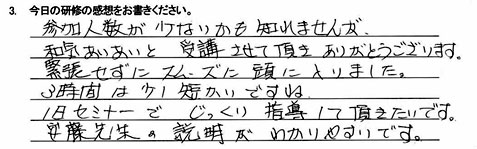 3. 今日の研修の感想をお書きください。
参加人数が少ないかも知れませんが、
和気あいあいと受講させて頂きありがとうございます。
緊張せずにスムーズに頭に入りました。
3時間は少し短かいですね
1日セミナーでじっくり指導して頂きたいです。
安藤先生の説明がわかりやすいです。